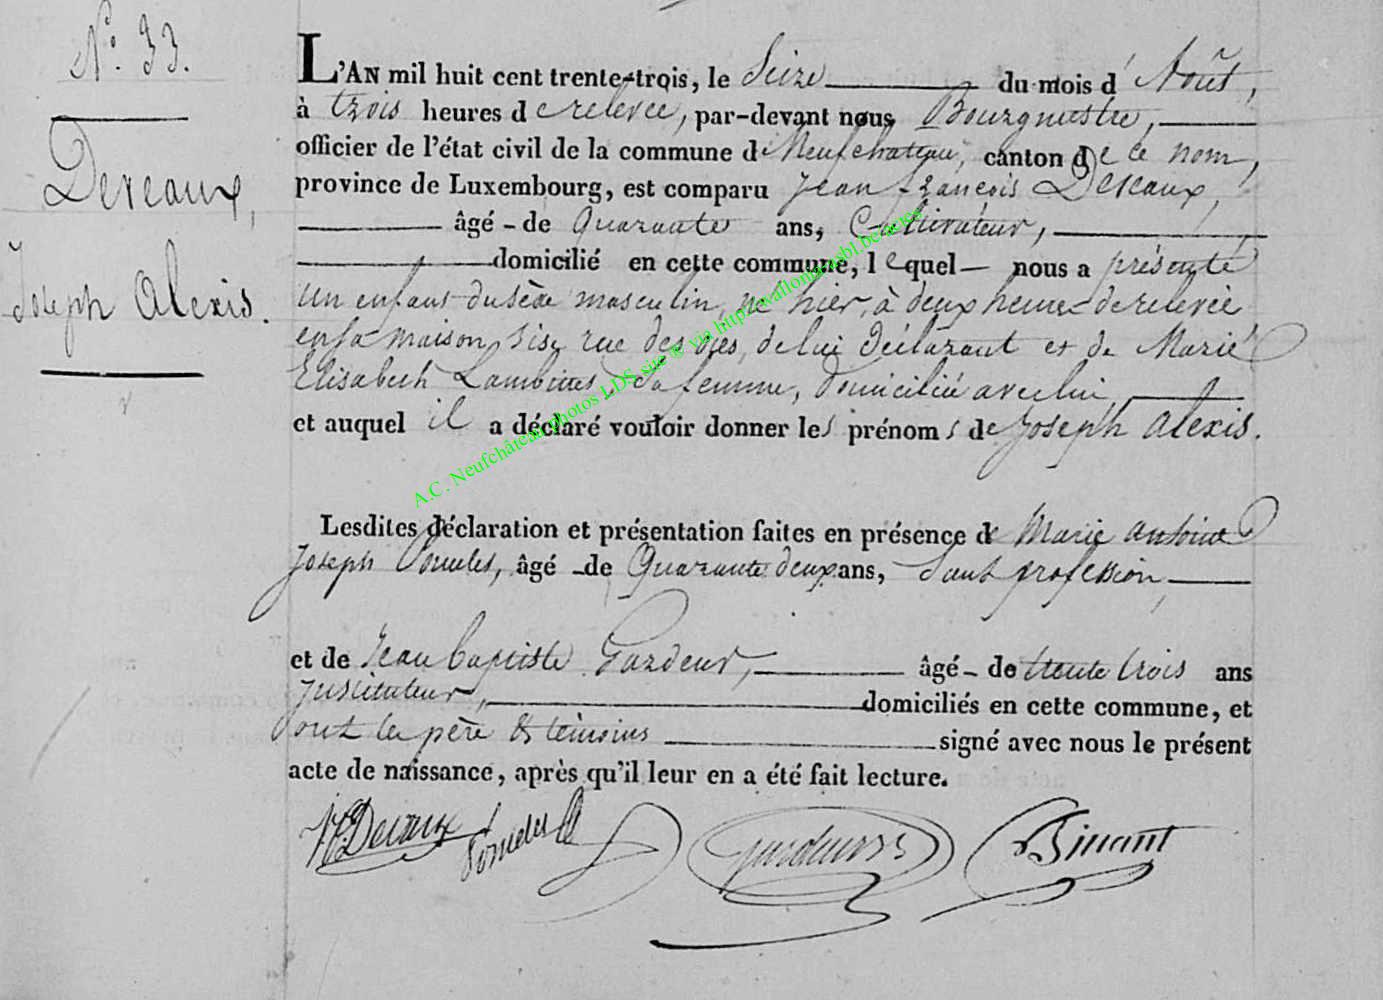 N.° 33.
Deveaux,
Joseph Alexis.
L'AN mil huit cent trente-trois, le Seize du mois d'Août,
à trois heures de relevée, par-devant nous Bourgmestre,
officier de l'état civil de la commune de Neufchateau, canton de ce nom,
province de Luxembourg, est comparu Jean françois Deveaux,
âgé - de Quarante ans, Cultivateur,
domicilié en cette commune, lequel nous a présenté
un enfant du sèxe masculin, né hier, à deux heures de relevée
en sa maison, sise rue des oies, de lui Déclarant et de Marie
Elisabeth Lambinet, sa femme, domiciliée avec lui,
et auquel il a déclaré vouloir donner les prénoms de Joseph alexis.
Lesdites déclaration et présentation faites en présence de Marie antoine
Joseph âgé - de Quarante deux ans, Sans profession,
et de Jean baptiste âgé - de trente trois ans
Instituteur, domiciliés en cette commune, et
ont les père & témoins signé avec nous le présent
acte de naissance, après qu'il leur en a été fait lecture.
Devaux
Binant
A.C. Neufchâteau photos LDS site ® via http://wallonia-asbl.be/actes